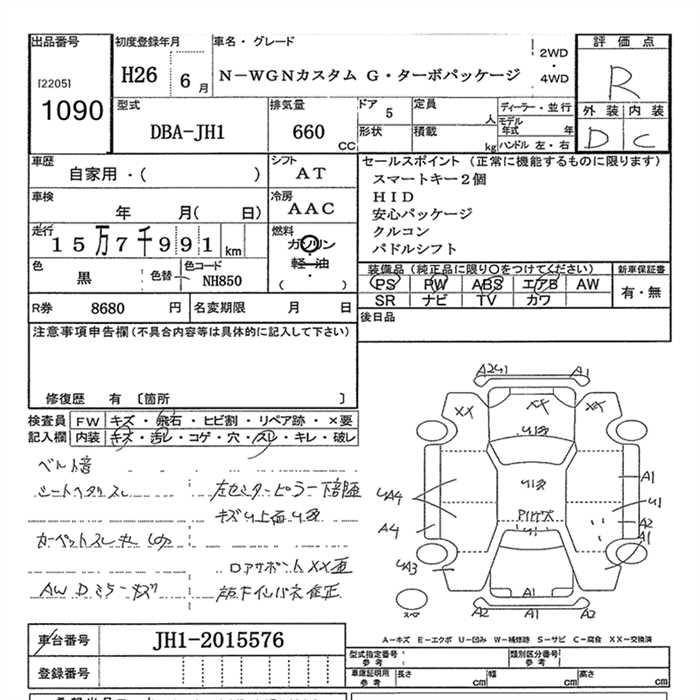 出品番号
[2205]
1090
初度登録年月
H26 6月
車名・グレード
N-WGNカスタム G・ターボパッケージ
2WD
・
4WD
評価点
R
外装 内装
D C
型式
DBA-JH1
排気量
660 CC
ドア 5
定員 人
形状
積載 kg
ディーラー・並行
モデル年式 年
ハンドル 左・右
車歴
自家用・( )
シフト
AT
セールスポイント (正常に機能するものに限ります)
スマートキー2個
HID
安心パッケージ
クルコン
パドルシフト
車検
年 月( 日)
冷房
AAC
走行
15万7千991 km
燃料
ガソリン
・
軽油
・
( )
色
黒
色替
色コード
NH850
装備品 (純正品に限り○をつけてください)
PS PW ABS エアB AW
SR ナビ TV カワ
新車保証書
有・無
R券 8680 円
名変期限 月 日
後日品
注意事項申告欄(不具合内容等は具体的に記入して下さい)
修復歴 有 〔箇所 〕
検査員 FW キズ・飛石・ヒビ割・リペア跡・×要
記入欄 内装 キズ・汚レ・コゲ・穴・スレ・キレ・破レ
ベルト音
左センターピラー下部凹
AW Dミラーキズ
A1
XX XX XX
A1
A4
A1
A2
A1
A1
A2 A1 A3
A-キズ E-エクボ U-凹み W-補修跡 S-サビ C-腐食 XX-交換済
車台番号 JH1-2015576
登録番号
型式指定番号
参考
類別区分番号
参考
車庫証明用
参考
長さ cm
幅 cm
高さ cm